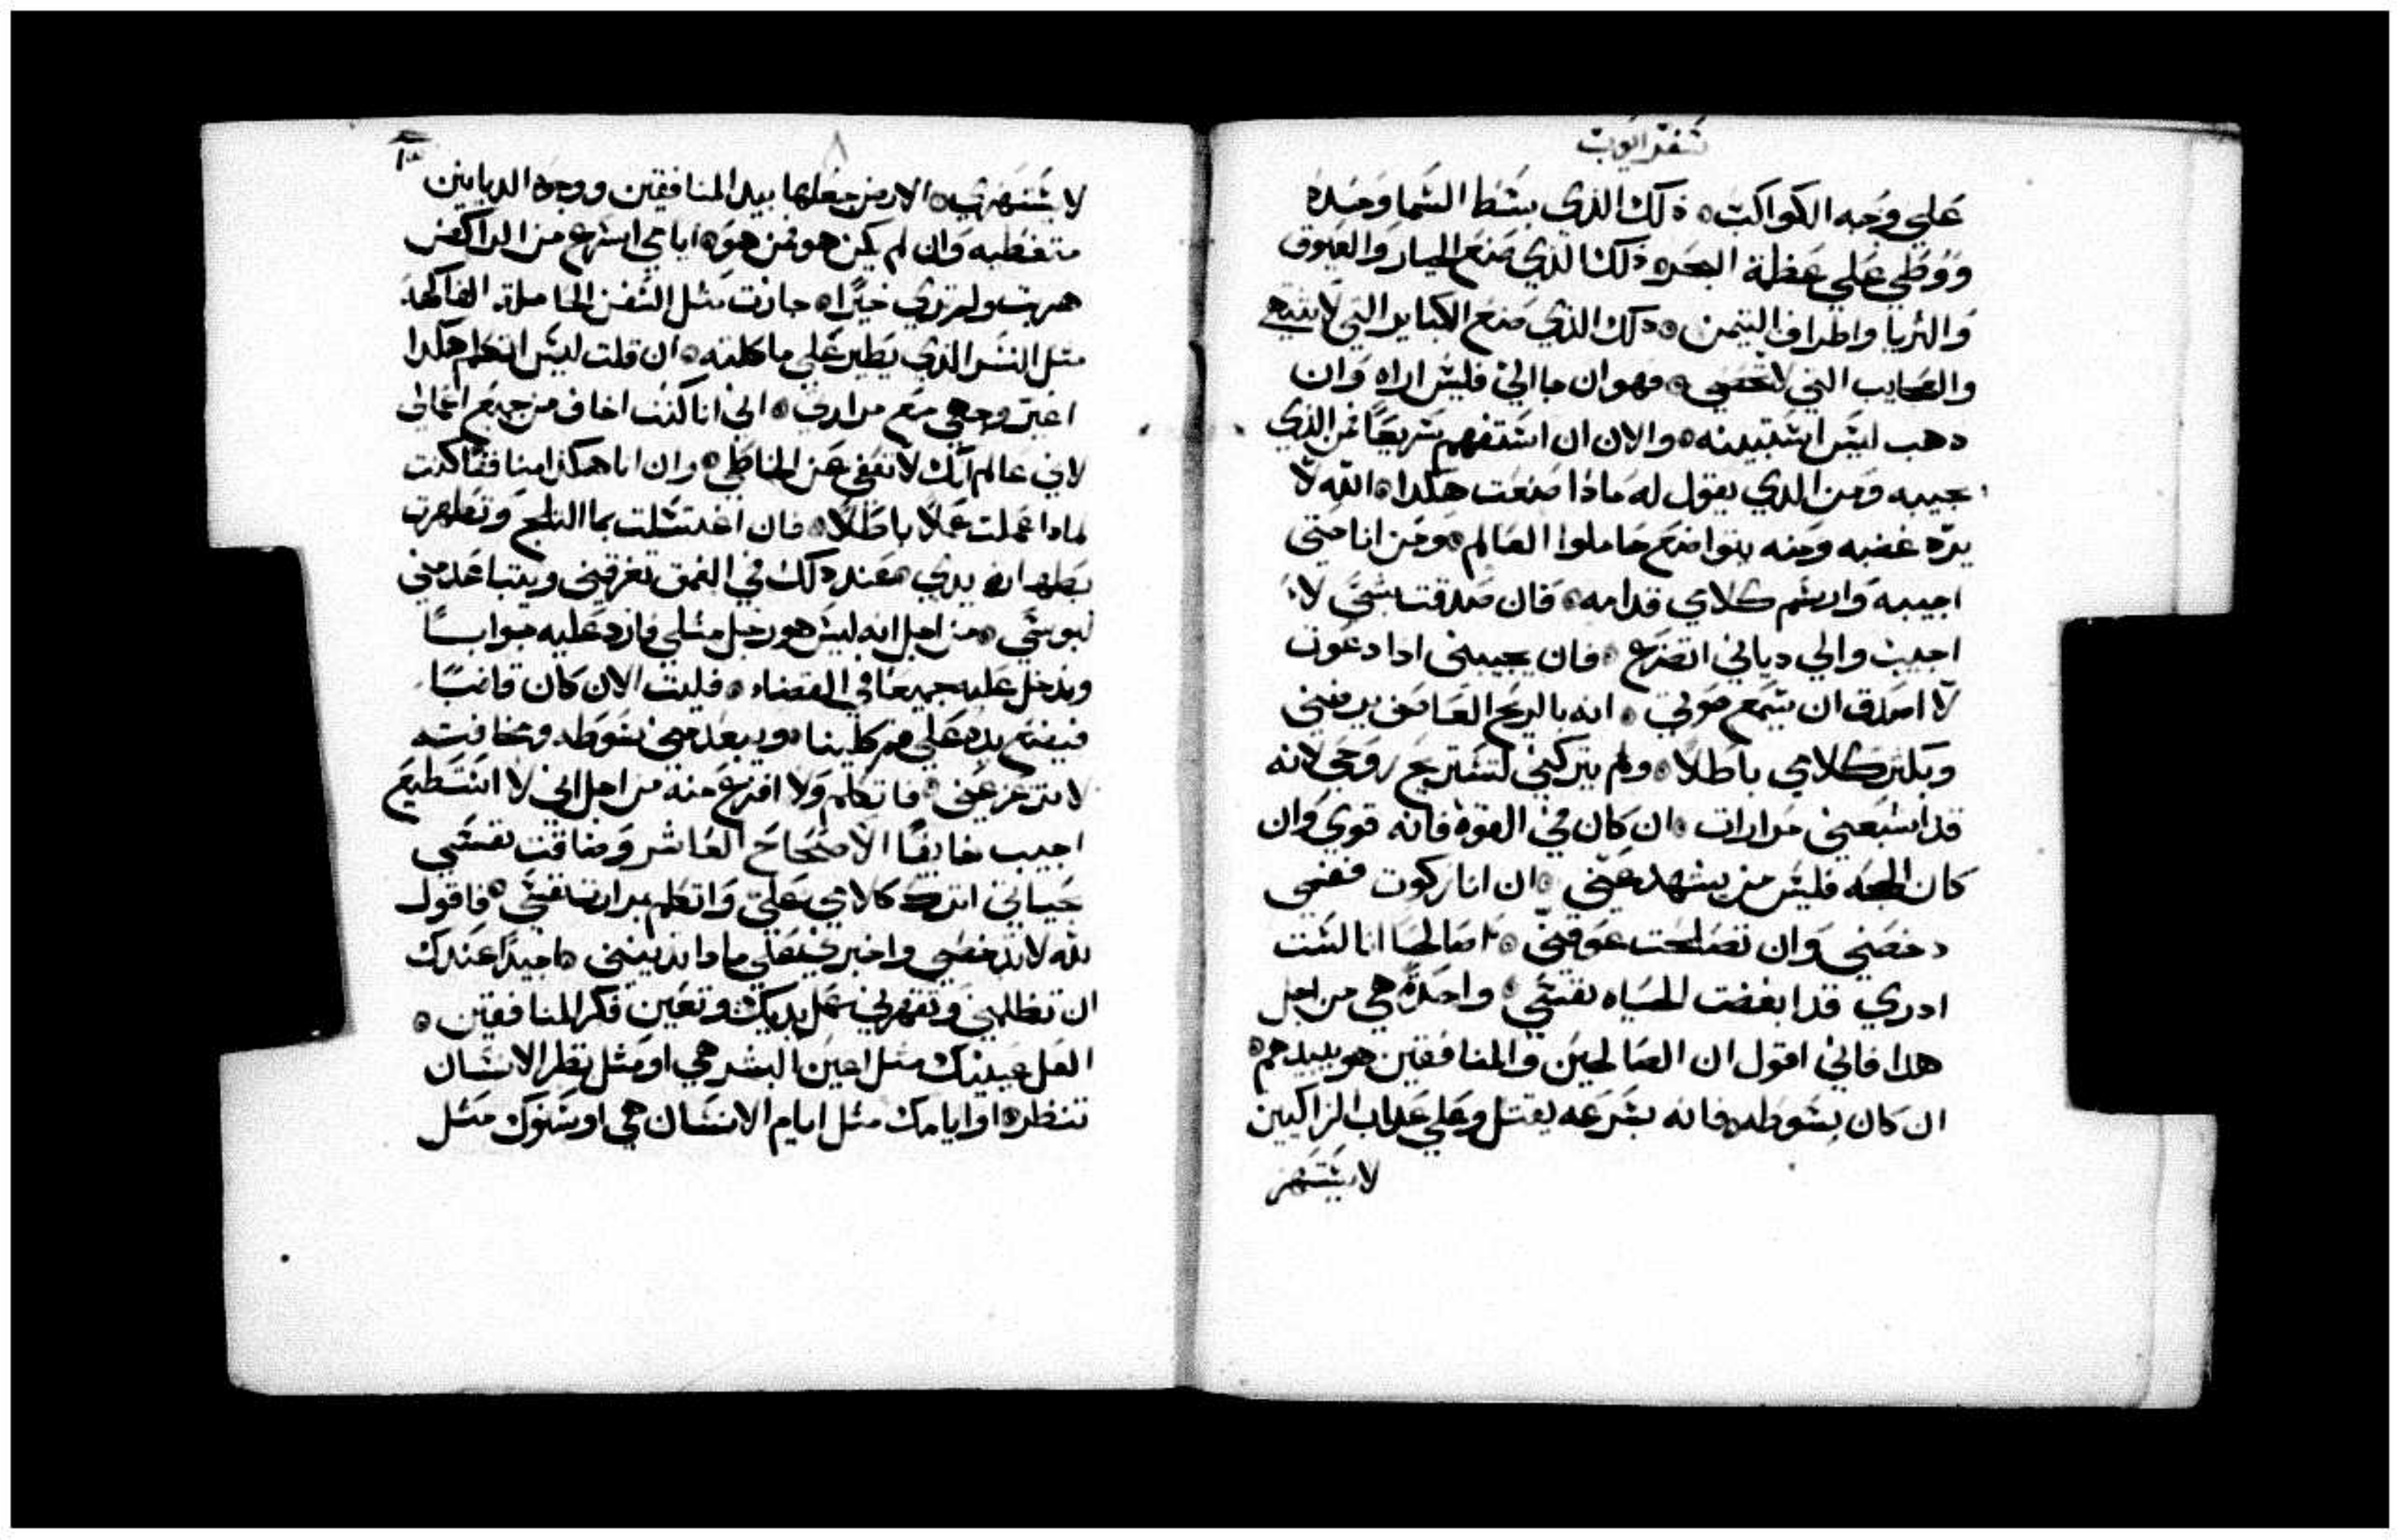 سفر ايوب
علي وجه الكواكب ⦿ ذلك الذي بسط السما وحده
ووطي علي عظمة البحر ⦿ ذلك الذي صنع الجبار والعيوق
والثريا واطراف التيمن ⦿ ذلك الذي صنع الكباير التي لا تنتهي
والعجايب التي لا تحصي ⦿ فهو ان جا الي فليس اراه وان
دهب ليس استبينه ⦿ والان ان استفهم سريعا فمن الذي
يجيبه ومن الدي يقول له ماذا صنعت هكذا ⦿ الله لا
يرد غضبه ومنه يتواضع حاملوا العالم ⦿ ومن انا حتي
اجيبه وارسم كلامي قدامه ⦿ فان صدقت بشي لا
اجيب والي دياني اتضرع ⦿ فان يجيبني ادا دعوت
لا اصدق ان سمع صوتي ⦿ انه بالريح العاصف يرضني
ويكثر كلامي باطلا ⦿ ولم يتركني لتستريح روحي لانه
قد اشبعني مرارات ⦿ ان كان في القوة فانه قوي وان
كان الحجه فليس من يشهد عني ⦿ ان انا زكوت ففمي
دحضني وان تصالحت عوقني ⦿ اصالحا انا لست
ادري قد ابغضت الحياه نفسي ⦿ واحدة هي من اجل
هدا فاني اقول ان الصالحين والمنافقين هو يبيدهم ⦿
ان كان بسوطه فانه بسرعه يقتل وعلي عداب الزاكيين
لا يستهز
لا يستهزي ⦿ الارض جعلها بيد المنافقين ووجوه الديانين
متغطيه وان لم يكن هو فمن هو ⦿ ايامي اسرع من الراكض
هربت ولم تري خيرا ⦿ جازت مثل السفن الحاملة الفاكهة
مثل النسر الذي يطير علي ماكلته ⦿ ان قلت ليس اتكلم هكدا
اغير وجهي مع مرارتي ⦿ اني انا كنت اخاف من جميع اعمالي
لاني عالم انك لا تعفي عن الخاطي ⦿ وان انا هكذا منافقا كنت
لمادا عملت عملا باطلا ⦿ فان اغتسلت بما الثلج وتطهرت
بطهارة يدي ⦿ فعند دلك في العمق تغرقني ويتباعد مني
لبوسي ⦿ من اجل انه ليس هو رجل مثلي فارد عليه جوابا
وندخل عليه جميعا في القضاء ⦿ فليت الان كان قاضيا
فيضع يده علي من كلينا ⦿ ويبعد مني سوطه ومخافته
لا تزعزعني ⦿ فاتكلم ولا افزع منه من اجل اني لا استطيع
اجيب خايفا الاصحاح العاشر وضاقت نفسي
بحياتي اترك كلامي علي واتكلم بمرارة نفسي ⦿ فاقول
لله لا تدحضني واخبرني علي مادا تدينني ⦿ اجيدا عندك
ان تظلمني وتقهرني عمل يديك وتعين فكر المنافقين ⦿
العل عينيك مثل اعين البشر هي او مثل نظر الانسان
تنظر ⦿ او ايامك مثل ايام الانسان هي او سنوك مثل